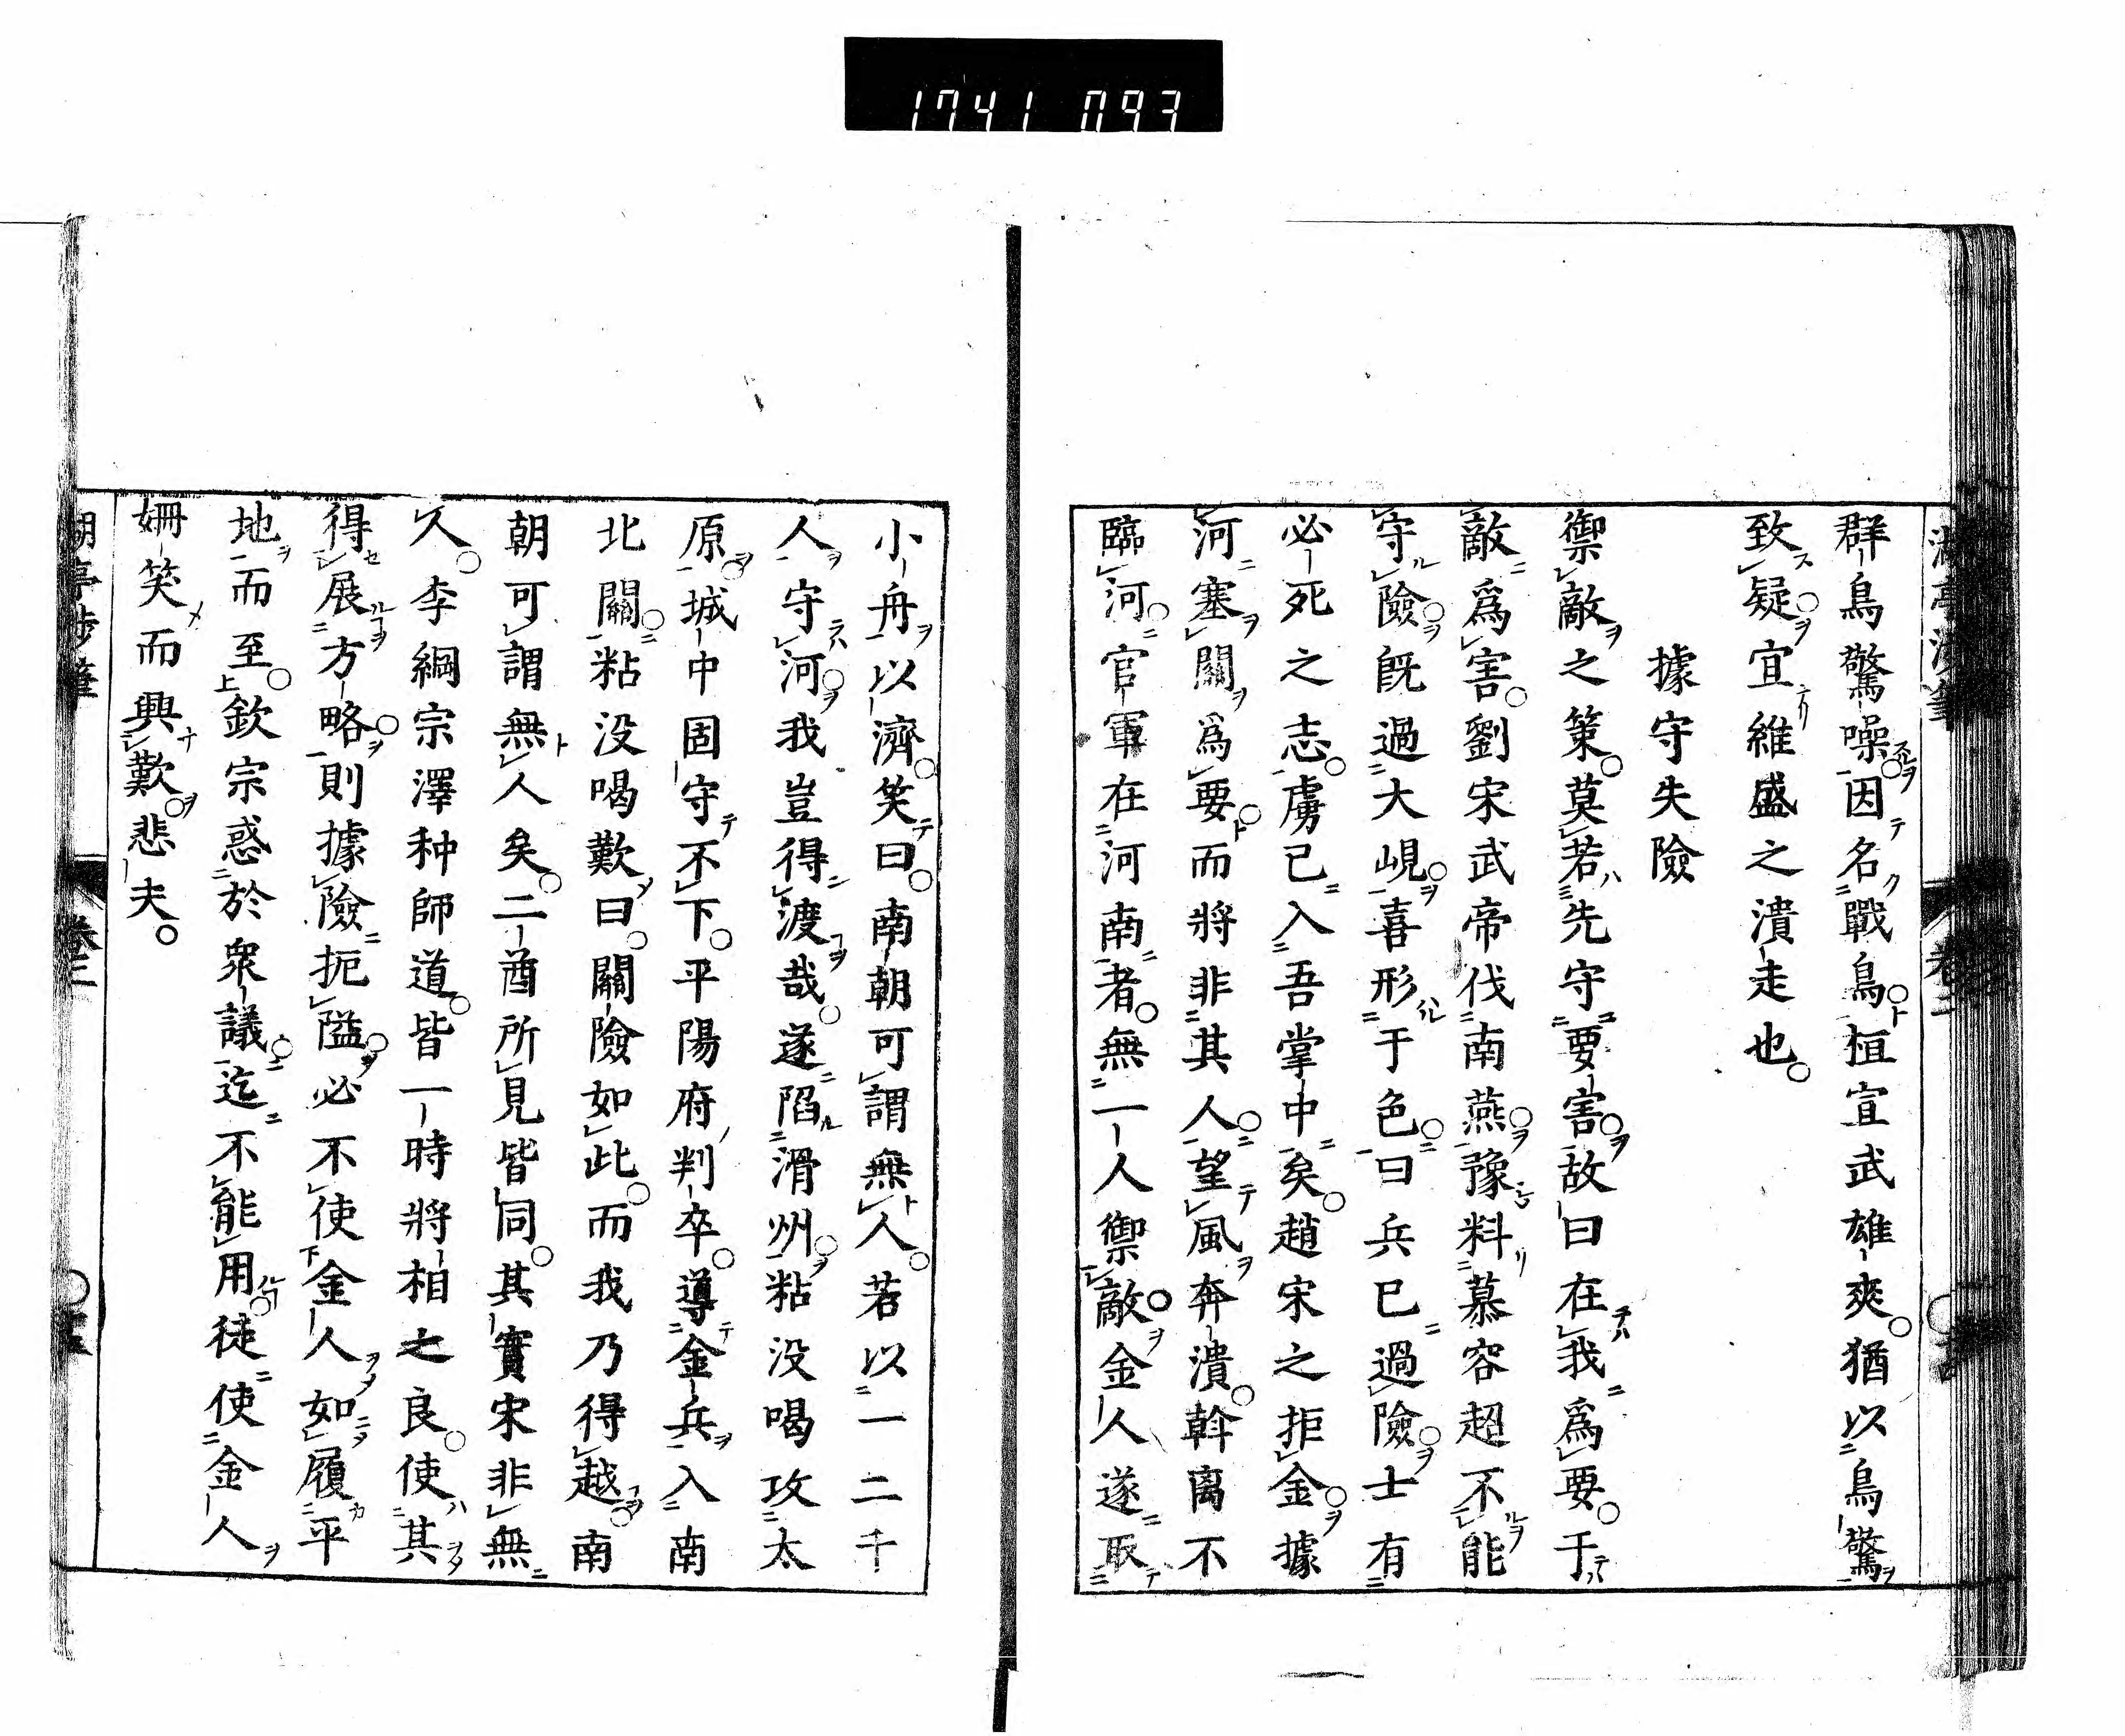 1741 093
群鳥驚噪因名戰鳥桓宣武雄爽猶以鳥驚
致疑宜維盛之潰走也
據守失險
禦敵之策莫若先守要害故曰在我爲要于
敵爲害劉宋武帝伐南燕豫料慕容超不能
守險既過大峴喜形于色曰兵已過險士有
必死之志虜已入吾掌中矣趙宋之拒金據
河塞關爲要而將非其人望風奔潰斡离不
臨河官軍在河南者無一人禦敵金人遂取
小舟以濟笑曰南朝可謂無人若以一二千
人守河我豈得渡哉遂陷滑州粘没喝攻太
原城中固守不下平陽府判卒導金兵入南
北關粘没喝歎曰關險如此而我乃得越南
朝可謂無人矣二酋所見皆同其實宋非無
人李綱宗澤种師道皆一時將相之良使其
得展方略則據險扼隘必不使金人如履平
地而至欽宗惑於衆議迄不能用徒使金人
姍笑而興歎悲夫
湖亭涉筆
卷三